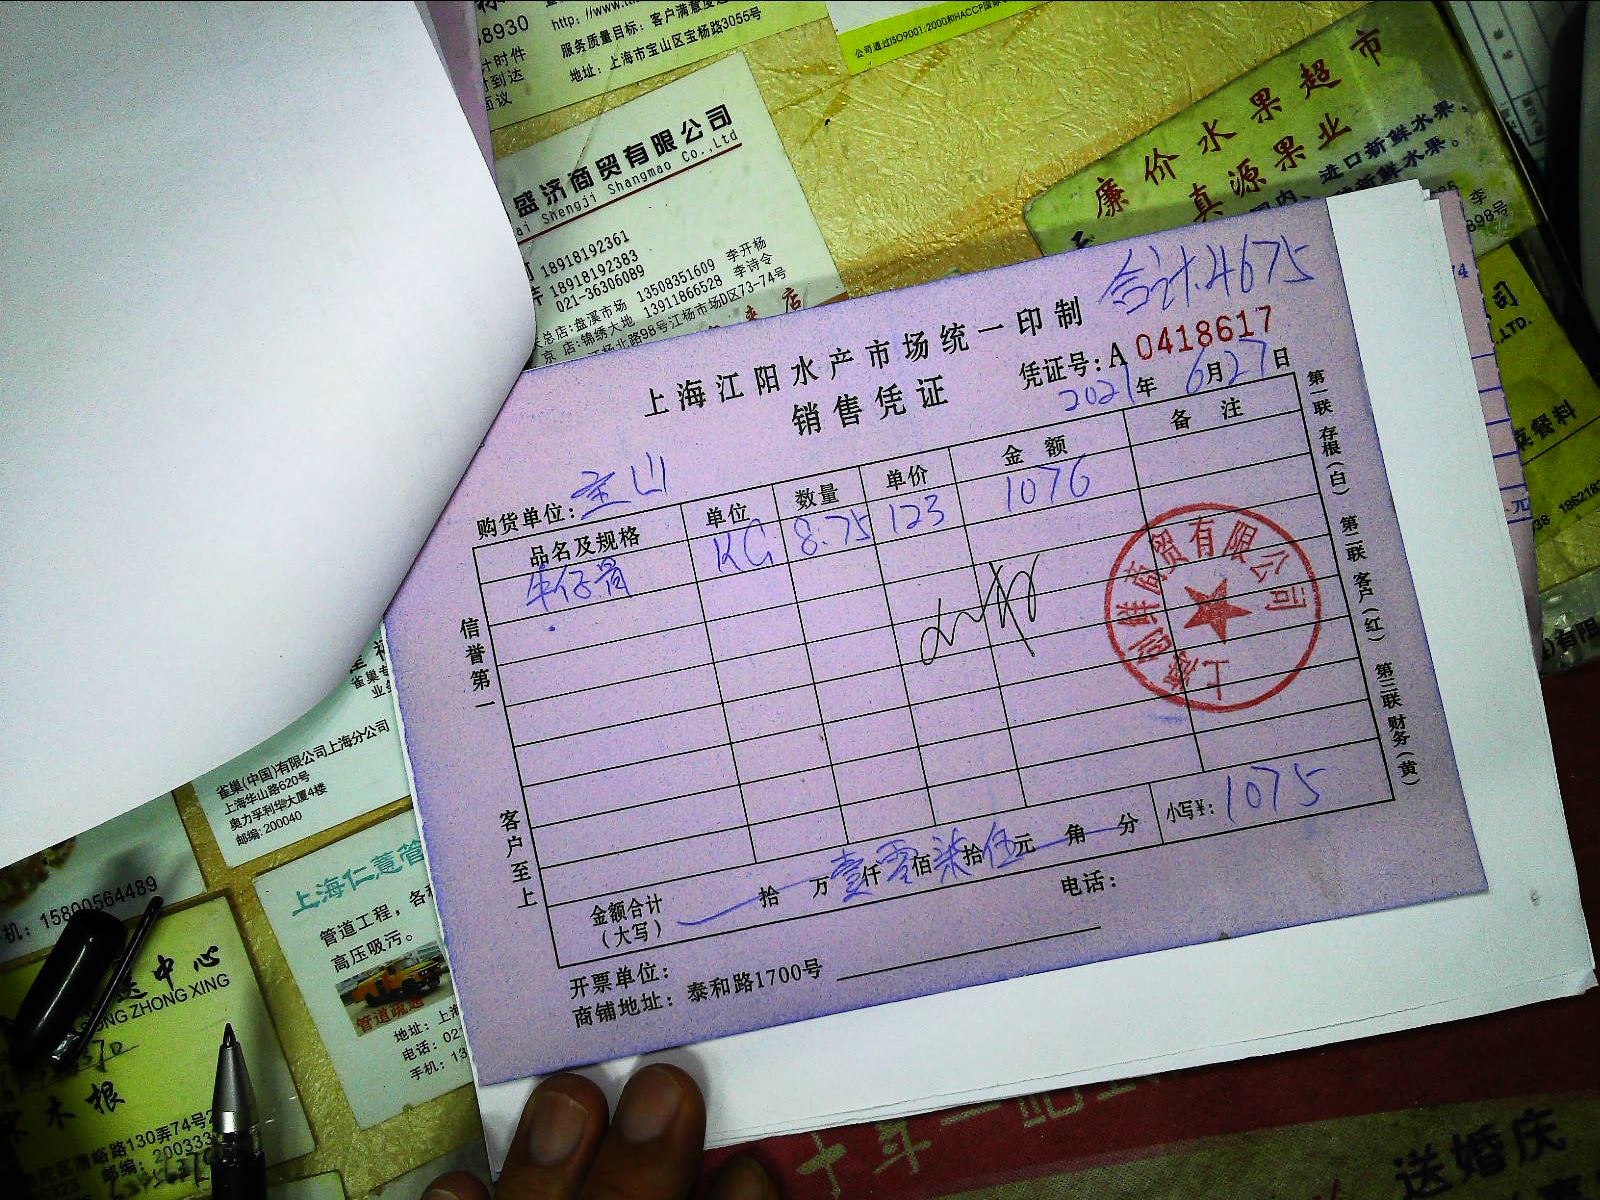 8930
http://www.
服务质量目标：客户满意度
地址：上海市宝山区宝杨路3055号
计时件
到达
面议
公司通过ISO9001:2000和HACCP国际
盛济商贸有限公司
ai Shengji Shangmao Co.,Ltd
18918192361
18918192383
021-36306089
李开杨
总店:盘溪市场 13508351609 李诗令
京 店:锦绣大地 13911866528
江杨北路98号江杨市场D区73-74号
廉价水果超市
真源果业
进口新鲜水果，
新鲜水果。
李
898号
合计.4675
上海江阳水产市场统一印制
销售凭证
凭证号：A 0418617
2021年 6月27日
购货单位：宝山
品名及规格 单位 数量 单价 金额 备注
牛仔骨 KG 8.75 123 1076
上海 鲜商贸有限公司
信誉第一 客户至上
第一联 存根（白） 第二联 客户（红） 第三联 财务（黄）
金额合计（大写） 拾 万 壹仟 零佰 柒拾 伍元 角 分 小写¥：1075
开票单位： 电话：
商铺地址：泰和路1700号
雀巢(中国)有限公司上海分公司
上海华山路620号
奥力孚利华大厦4楼
邮编: 200040
机：15800564489
上海仁薏管
管道工程，各
高压吸污。
管道疏通
地址：上海
电话：02
手机：13
送中心
SONG ZHONG XING
木根
路130弄74号
邮编：200333
公司
LTD.
餐料
有限
送婚庆